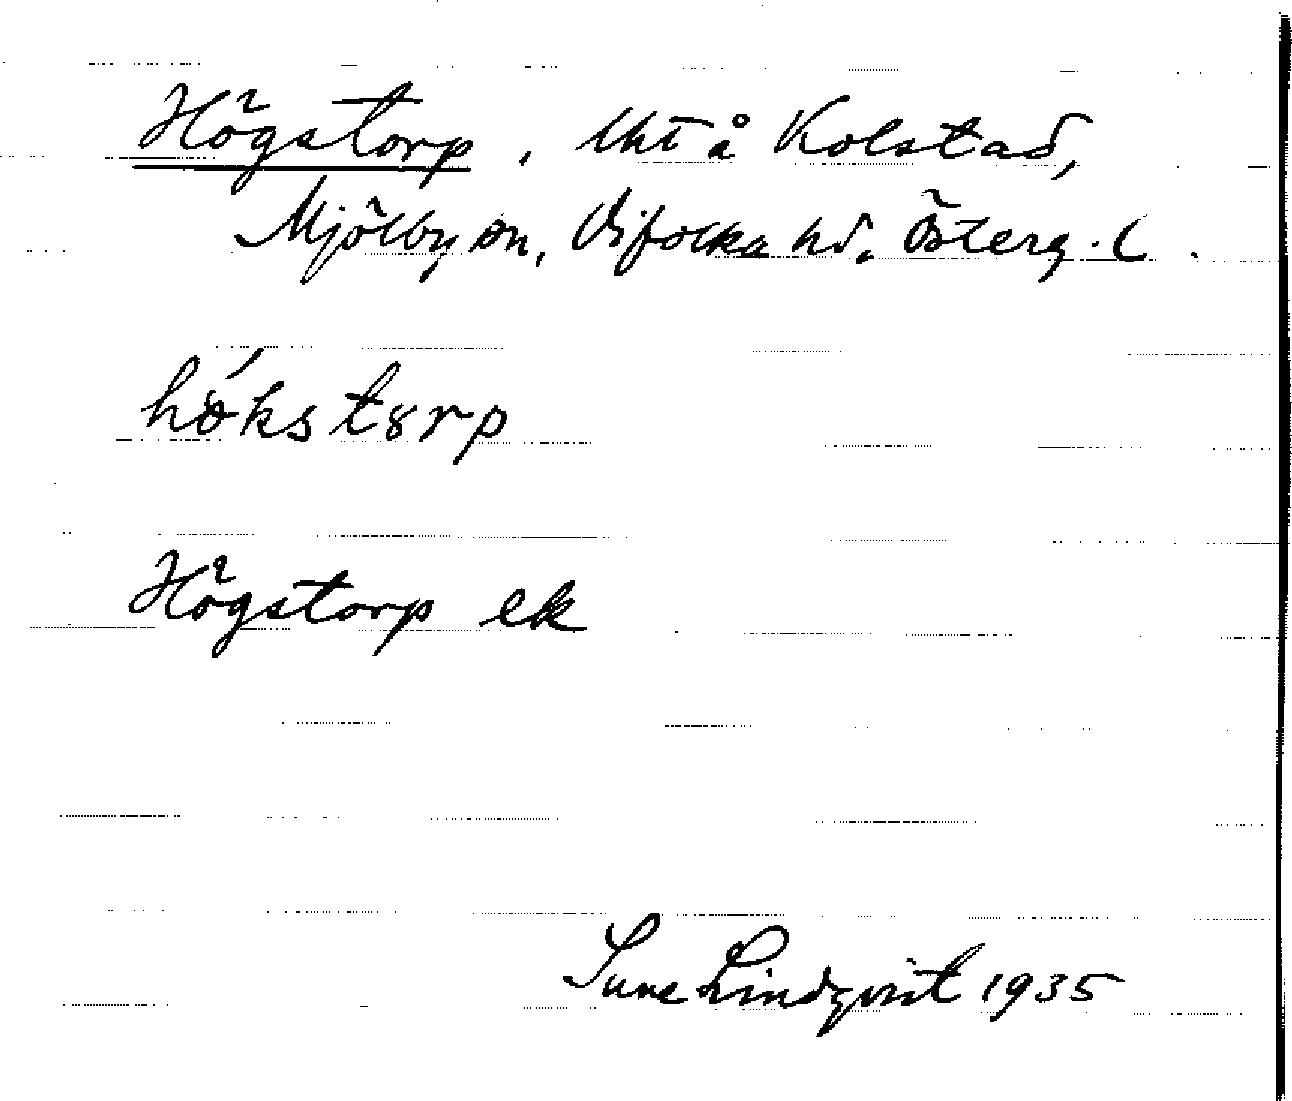 Högstorp, lht å Kolstad,
Mjölby sn, Vifolka hd. Österg. l.
hǿkstȣrp
Högstorp ek
Sune Lindqvist 1935